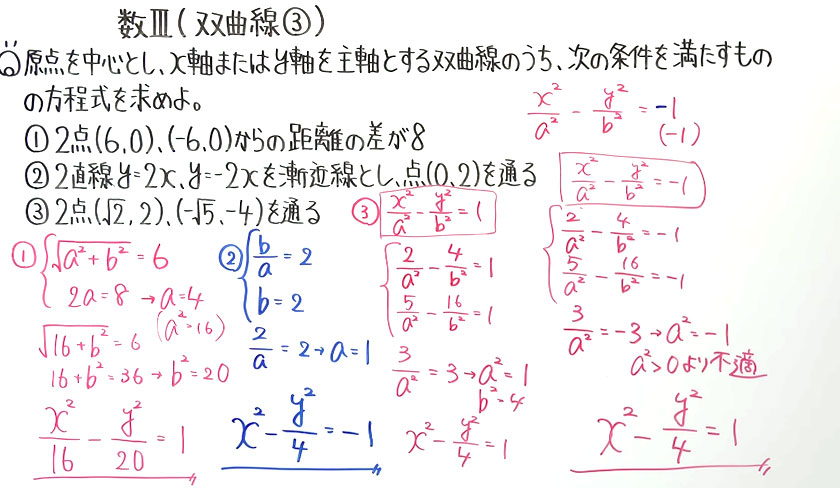 数Ⅲ(双曲線③)
Q 原点を中心とし、x軸またはy軸を主軸とする双曲線のうち、次の条件を満たすもの
の方程式を求めよ。
① 2点(6,0)、(-6,0)からの距離の差が8
② 2直線y=2x、y=-2xを漸近線とし、点(0,2)を通る
③ 2点(√2,2)、(-√5,-4)を通る
① { √(a²+b²) = 6
2a=8 → a=4
(a²=16)
√(16+b²) = 6
16+b²=36 → b²=20
x²/16 - y²/20 = 1
② { b/a = 2
b=2
2/a = 2 → a=1
x² - y²/4 = -1
③ x²/a² - y²/b² = 1
{ 2/a² - 4/b² = 1
5/a² - 16/b² = 1
3/a² = 3 → a² = 1
b²=4
x² - y²/4 = 1
x²/a² - y²/b² = -1
(-1)
x²/a² - y²/b² = -1
{ 2/a² - 4/b² = -1
5/a² - 16/b² = -1
3/a² = -3 → a² = -1
a²>0より不適
x² - y²/4 = 1